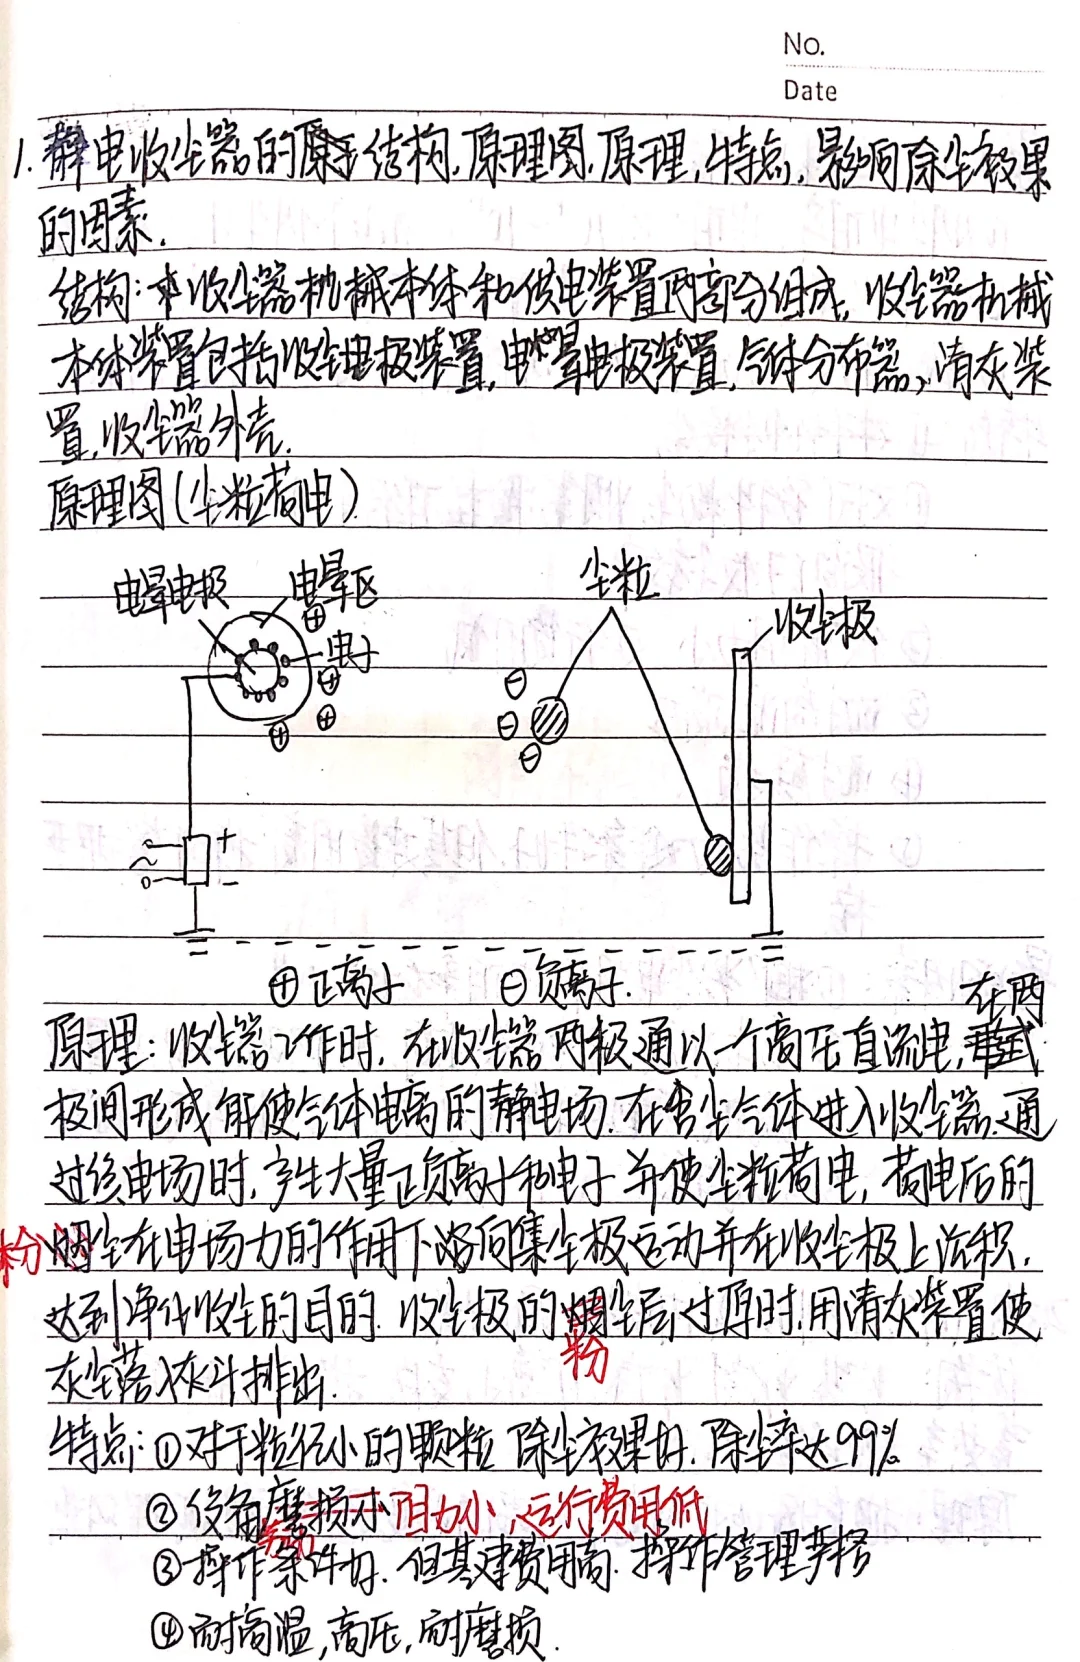 No.
Date
1. 静电收尘器的结构,原理图,原理,特点,影响除尘效果
的因素.
结构:收尘器机械本体和供电装置两部分组成,收尘器机械
本体装置包括收尘电极装置,电晕电极装置,气体分布器,清灰装
置,收尘器外壳.
原理图(尘粒荷电)
电晕电极 电晕区 尘粒
电子 收尘极
⊕正离子 ⊖负离子.
原理:收尘器工作时,在收尘器两极通以一个高压直流电,在两
极间形成能使气体电离的静电场.在含尘气体进入收尘器.通
过该电场时,产生大量正负离子和电子并使尘粒荷电,荷电后的
粉尘在电场力的作用下向集尘极运动并在收尘极上沉积.
达到净化收尘的目的.收尘极的粉尘层过厚时,用清灰装置使
灰尘落入灰斗排出.
特点:①对于粒径小的颗粒 除尘效果好.除尘率达99%
②设备阻力小,运行费用低
③操作条件好.但基建费用高.操作管理严格
④耐高温,高压,耐磨损.